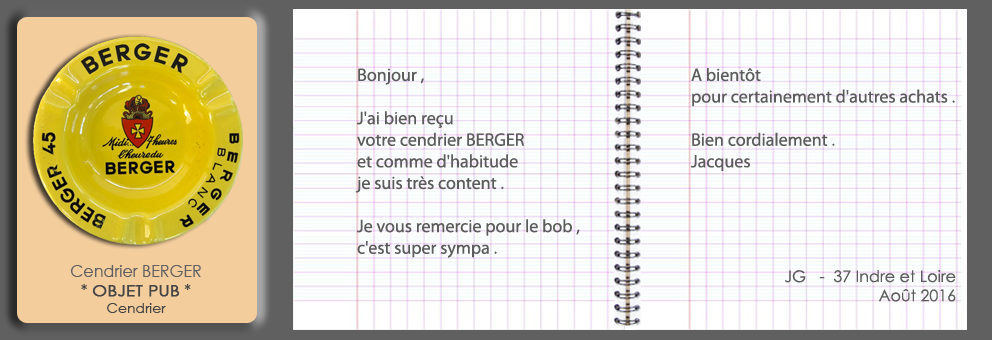 BERGER
BERGER 45
BERGER
BLANC
Midi 7 heures
l'heure du
BERGER
Cendrier BERGER
* OBJET PUB *
Cendrier
Bonjour ,
J'ai bien reçu
votre cendrier BERGER
et comme d'habitude
je suis très content .
Je vous remercie pour le bob ,
c'est super sympa .
A bientôt
pour certainement d'autres achats .
Bien cordialement .
Jacques
JG - 37 Indre et Loire
Août 2016